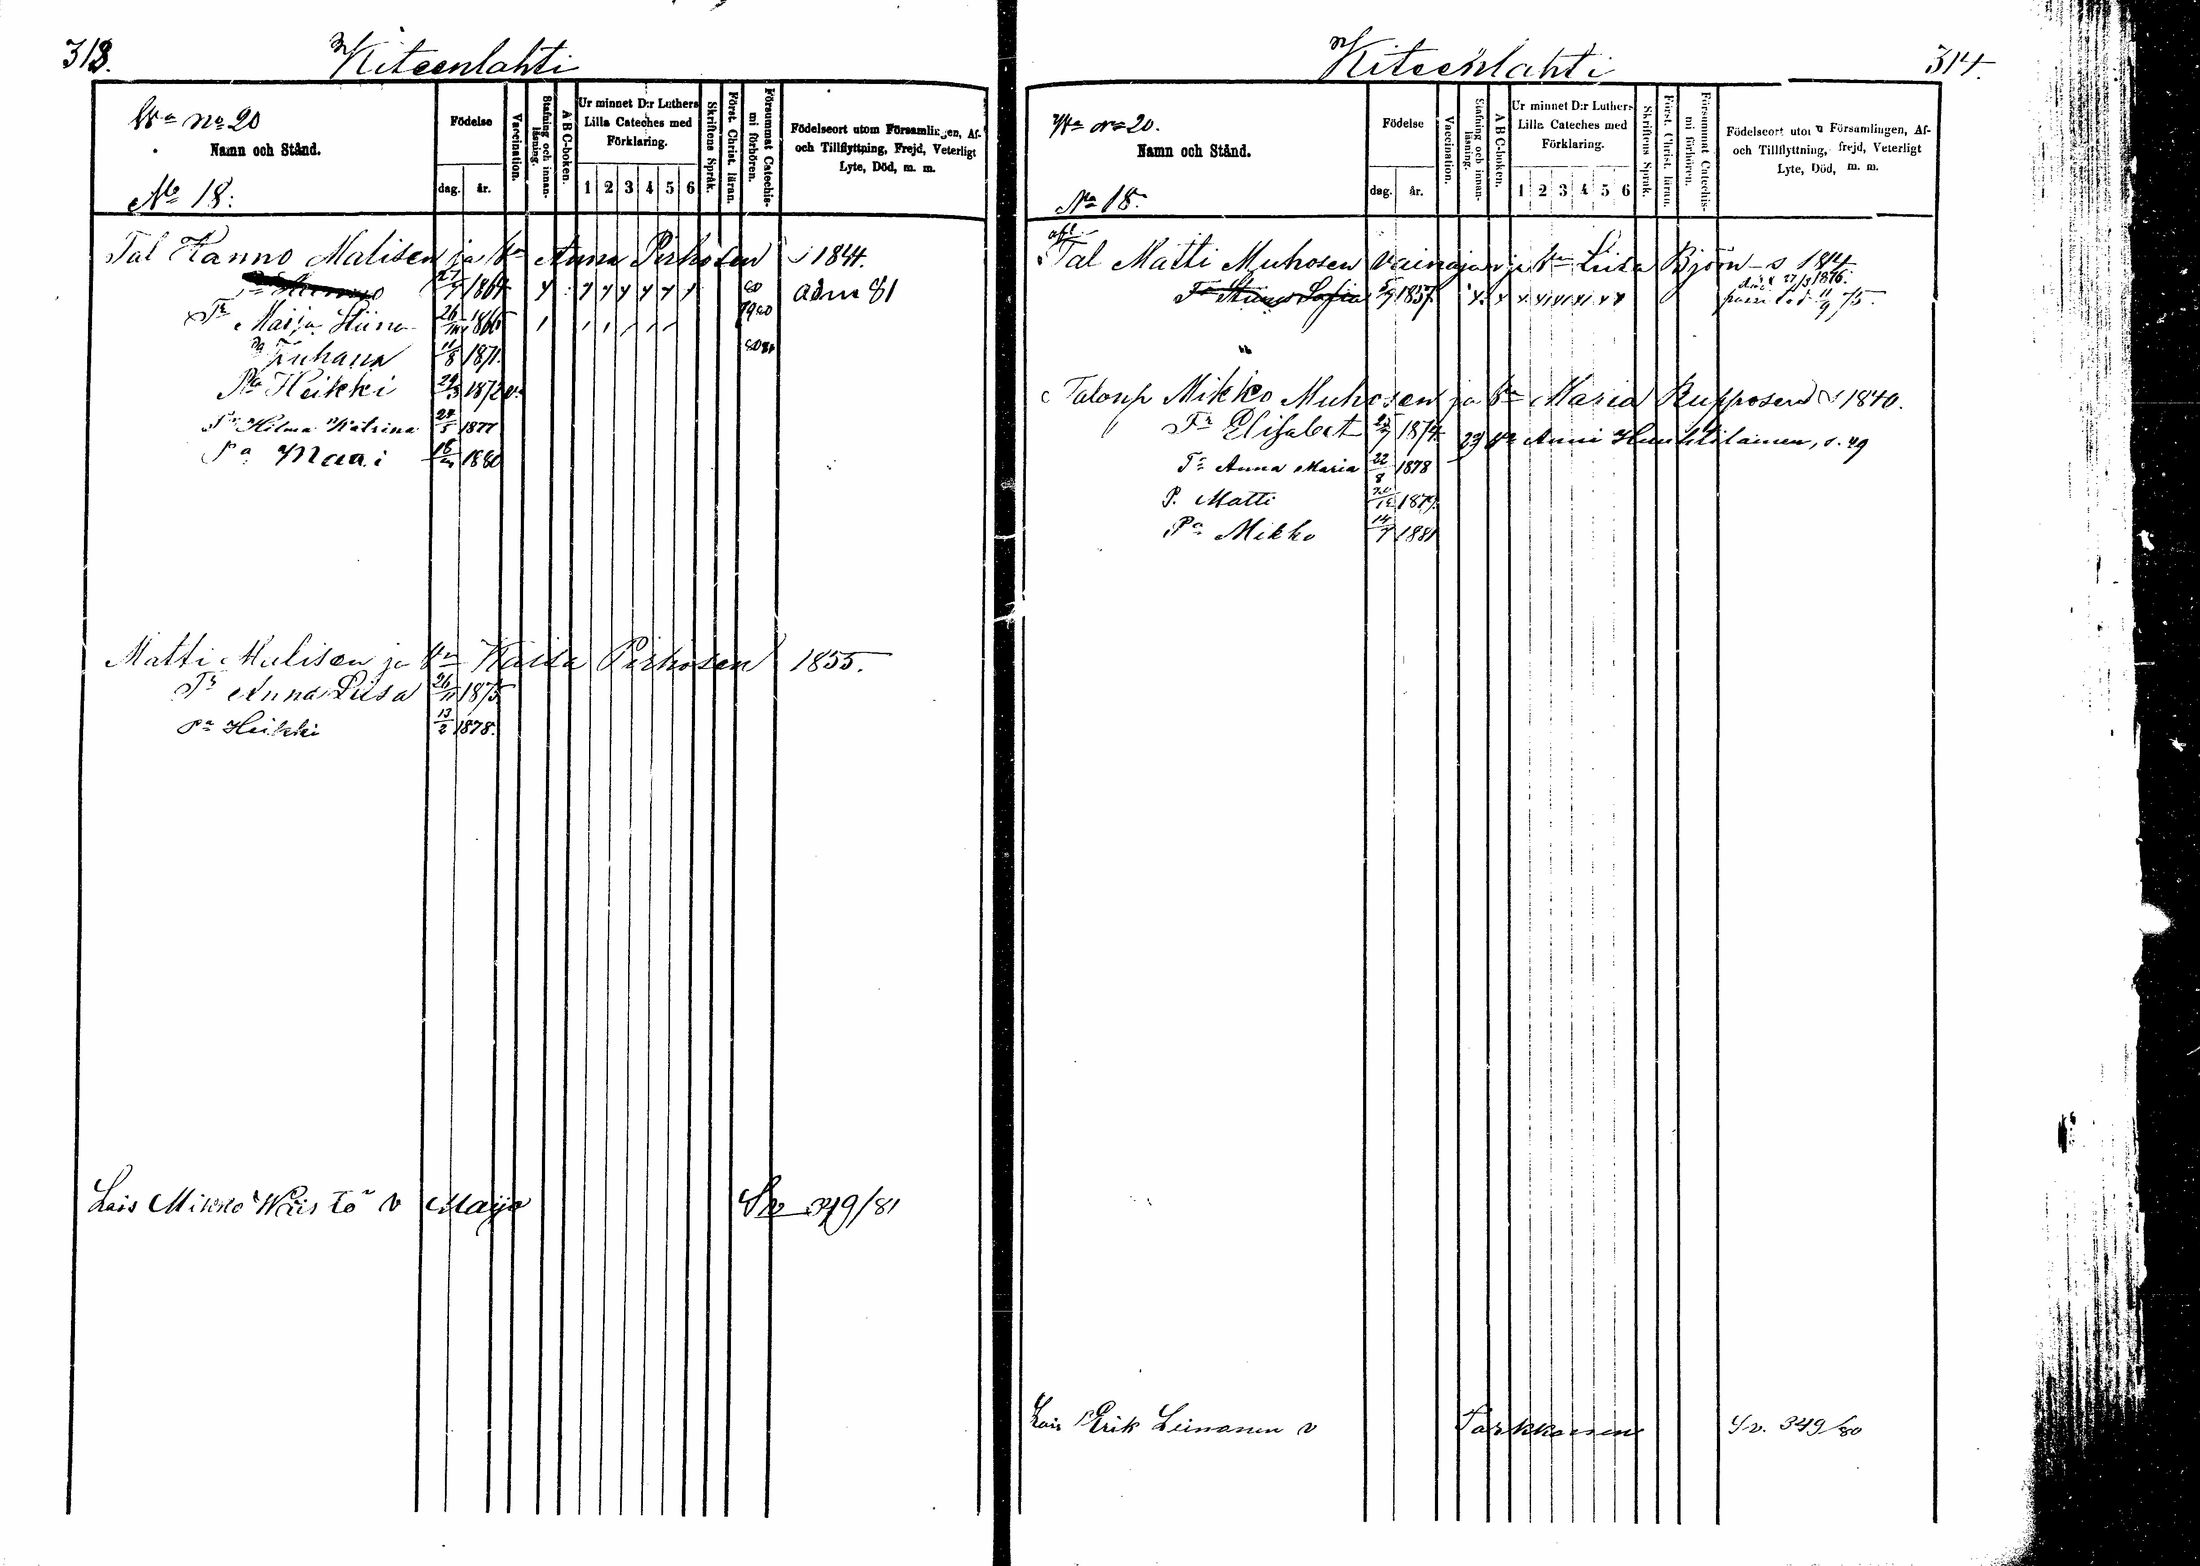 313.
Kiteenlahti
Wa No 20
Namn och Stånd.
No 18:
Födelse
dag. år.
Vaccination.
Stafning och innanläsning.
ABC-boken.
Ur minnet D:r Luthers Lilla Cateches med Förklaring.
1 2 3 4 5 6
Skriftens Språk.
Först. Christ. läran.
Försummat Catechismi förhören.
Födelseort utom Församlingen, Af- och Tillflyttning, Frejd, Veterligt Lyte, Död, m. m.
Tal Hanno Malisen ja Vn Anna Pirhosen s 1844.
1864 80 adm 81
Tr Maija Stina 26 1866
Pa Juhana 11/8 1871.
Pa Heikki 1872
Tr Hilma Katrina 27/5 1877
Pa Maari 1880
Matti Malisen ja Vn Kaisa Pirhosen 1855.
Tr Anna Liisa 26/11 1875
Pa Heikki 13/2 1878.
Lois Mikko v Maija 319/81
314.
Kiteenlahti
Wa No 20.
Namn och Stånd.
No 18.
Födelse
dag. år.
Vaccination.
Stafning och innanläsning.
ABC-boken.
Ur minnet D:r Luthers Lilla Cateches med Förklaring.
1 2 3 4 5 6
Skriftens Språk.
Först. Christ. läran.
Försummat Catechismi förhören.
Födelseort utom Församlingen, Af- och Tillflyttning, frejd, Veterligt Lyte, Död, m. m.
afl.
Tal Matti Muhosen vainajan ja Vn Liisa Björn s 1814
27/3 1876.
Tr Sofia 1857. 11/9 75.
Talonp Mikko Muhosen ja Vn Maria Rupposen s 1840.
Tr Elisabet 1874. Anni s. 49
Tr Anna Maria 22/8 1878
P. Matti 20/12 1879.
Pa Mikko 14/7 1881
Lois Erik Leinonen v Parkkonen Sv. 349/80